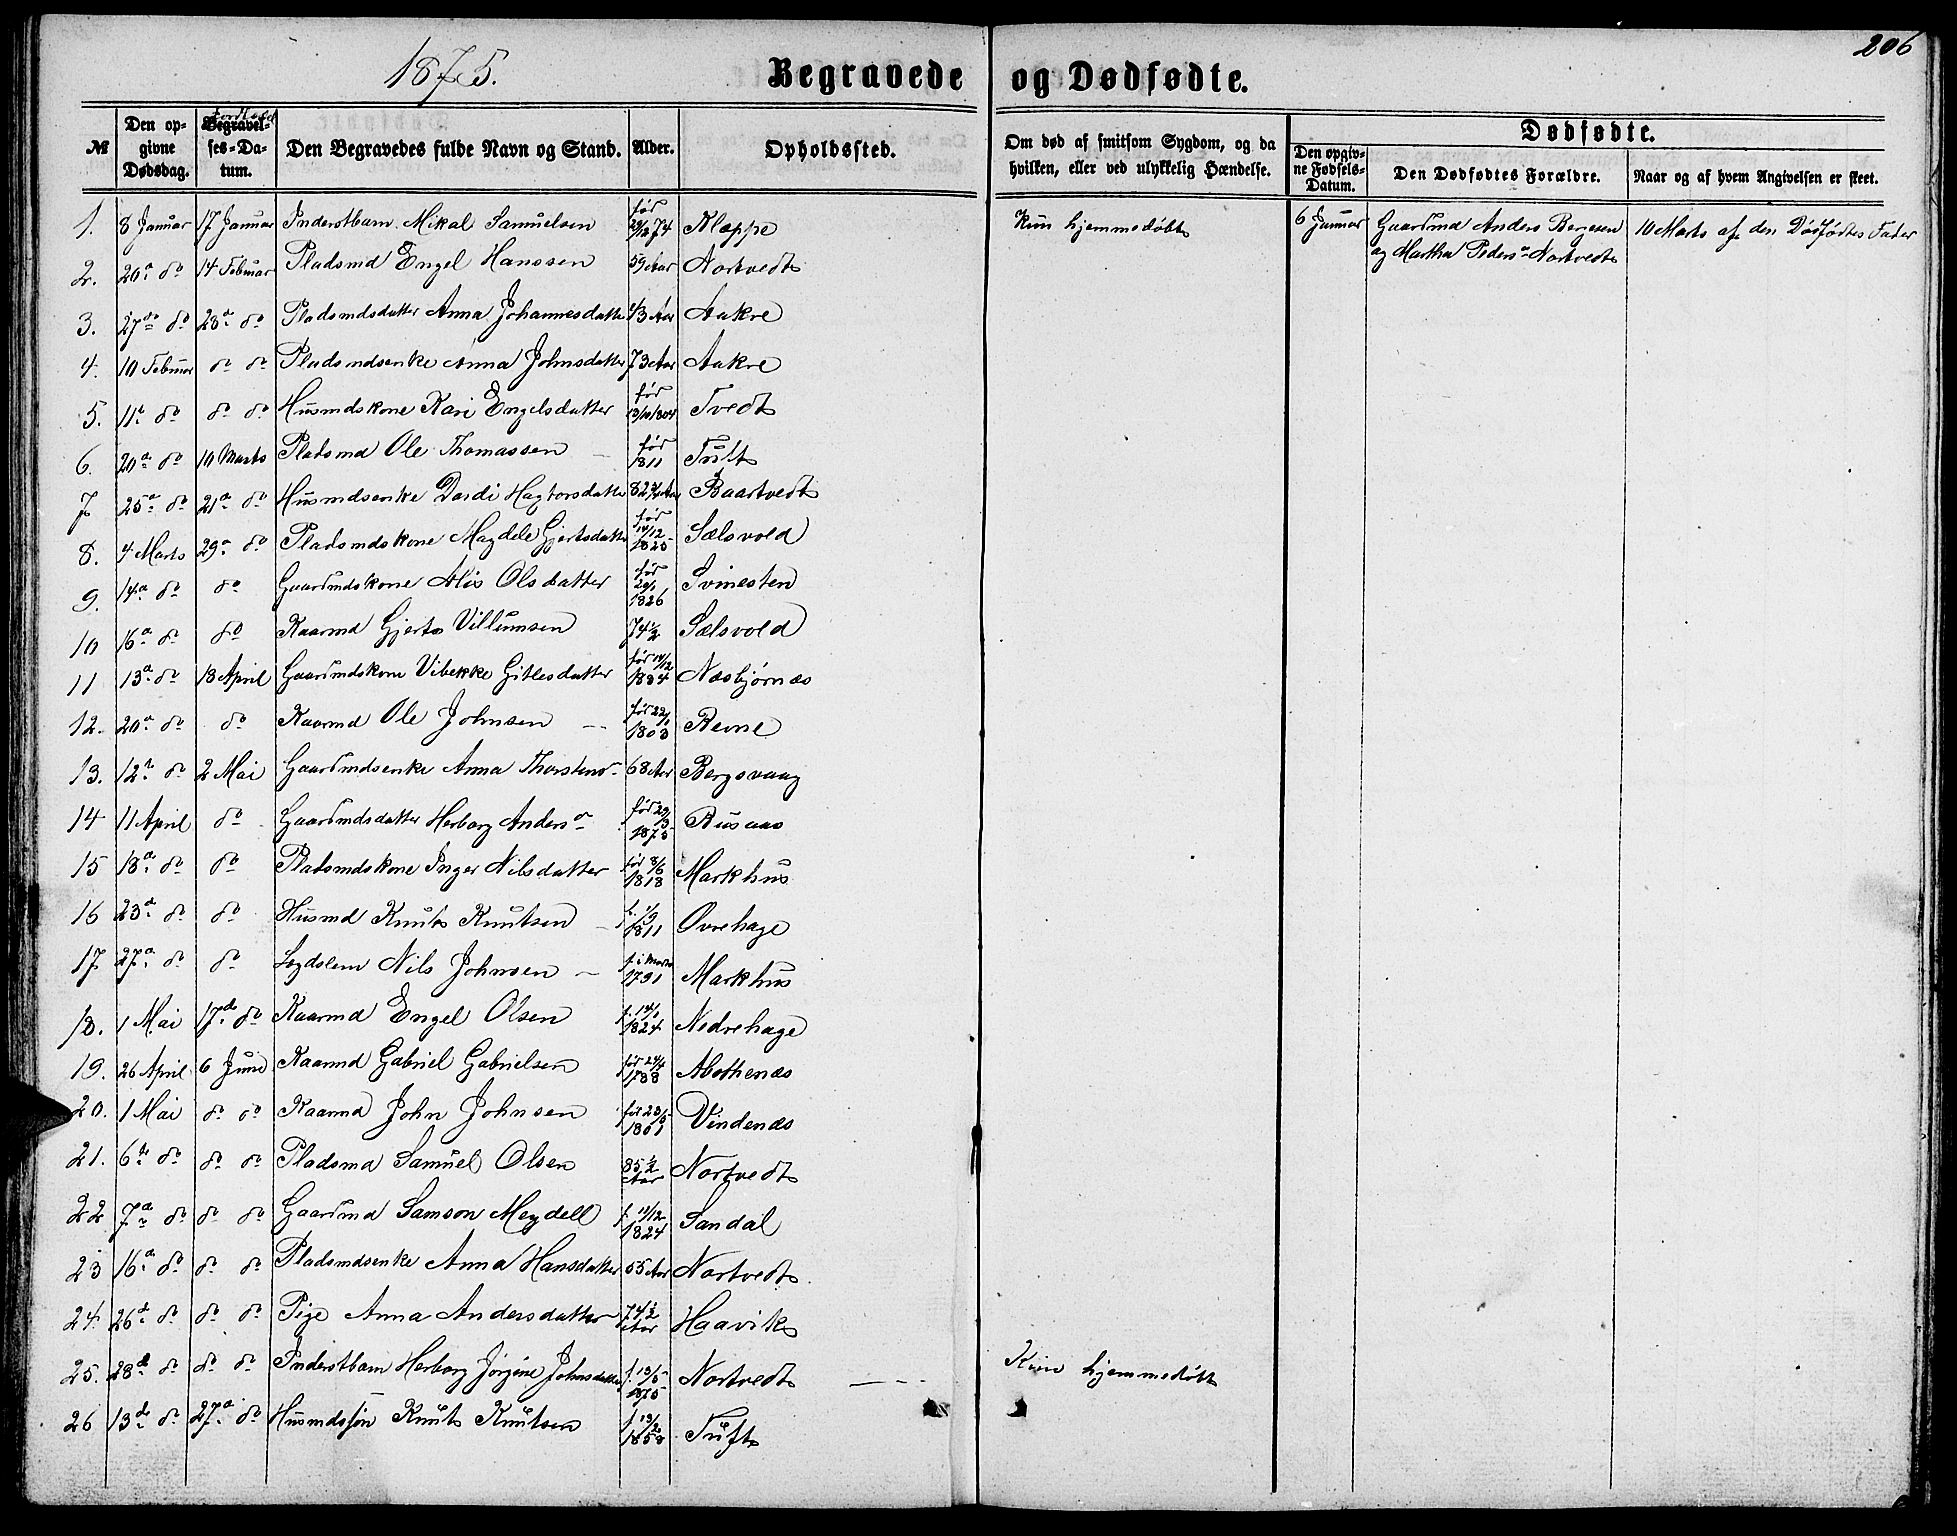 206
1875.
Begravede og Dødfødte.
№
Den opgivne Dødsdag.
Jordfæst
Begravelses-Datum.
Den Begravedes fulde Navn og Stand.
Alder.
Opholdssted.
Om død af smitsom Sygdom, og da hvilken, eller ved ulykkelig Hændelse.
Dødfødte.
Den opgivne Fødsels-Datum.
Den Dødfødtes Forældre.
Naar og af hvem Angivelsen er skeet.
1. 8 Januar 17 Januar Inderstbarn Mikal Samuelsen før 29/12 74 Kleppe Kun hjemmedøbt 6 Januar Gaardmd Anders Børgesen 10 Marts af den Dødfødtes Fader
og Martha Peders. Nortvedt
2. 20de do 14 Februar Pladsmd Engel Hanssen 59 Aar Nortvedt
3. 27de do 28de do Pladsmdsdatter Anna Johannesdatter 43 Aar Aakre
4. 10 Februar do do Pladsmdsenke Anna Johnsdatter 73 Aar Aakre
5. 11te do do do Husmdskone Kari Engelsdatter før 13/10 1804 Tvedt
6. 20de do 10 Marts Pladsmd Ole Thomassen før 1811 Tuft
7. 25de do 21de do Husmdsenke Dordi Hagtorsdatter 82 Aar Baartvedt
8. 4 Marts 29de do Pladsmdskone Magdele Gjertsdatter før 14/12 1825 Sælsvold
9. 14de do do Gaardmdskone Alis Olsdatter før 20/1 1826 Svinesten
10 16de do do Kaarmd Gjert Villumsen 74½ Sælsvold
11 13de do 18 April Gaardmdskone Vibekke Gitlesdatter før 14/12 1834 Næsbjørnæs
12. 20de do do Kaarmd Ole Johnsen før 22/1 1803 Revne
13. 12te do 2 Mai Gaardmdsenke Anna Thorstens 68 Aar Bergsvaag
14 11 April do Gaardmdsdatter Herborg Anders før 29/3 1875 Busaas
15 18de do do Pladsmdskone Inger Nilsdatter før 8/6 1818 Markhus
16 23de do do Husmd Knut Knutsen f. 1/9 1811 Øvrehage
17. 27de do do Lægdslem Nils Johnsen f. i Marts 1791 Markhus
18. 1 Mai 17de do Kaarmd Engel Olsen f. 14/1 1824 Nedrehage
19. 26 April 6 Juni Kaarmd Gabriel Gabrielsen før 24/4 1788 Mosthenæs
20. 1 Mai do do Kaarmd John Johnsen før 23/5 1801 Vindenæs
21. 6te do do do Pladsmd Samuel Olsen 85½ Aar Nortvedt
22 7de do do do Gaardmd Samson Meydell f. 11/12 1824 Sandal
23 16de do do do Pladsmdsenke Anna Hansdatter 65 Aar Nortvedt
24. 26de do do do Pige Anna Andersdatter 74½ Aar Haavik
25. 28de do do do Inderstbarn Herborg Jørgine Johnsdatter f. 13/5 1875 Nortvedt Kun hjemmedøbt
26 13de do 27de do Husmdssøn Knut Knutsen f. 13/2 1858 Tuft